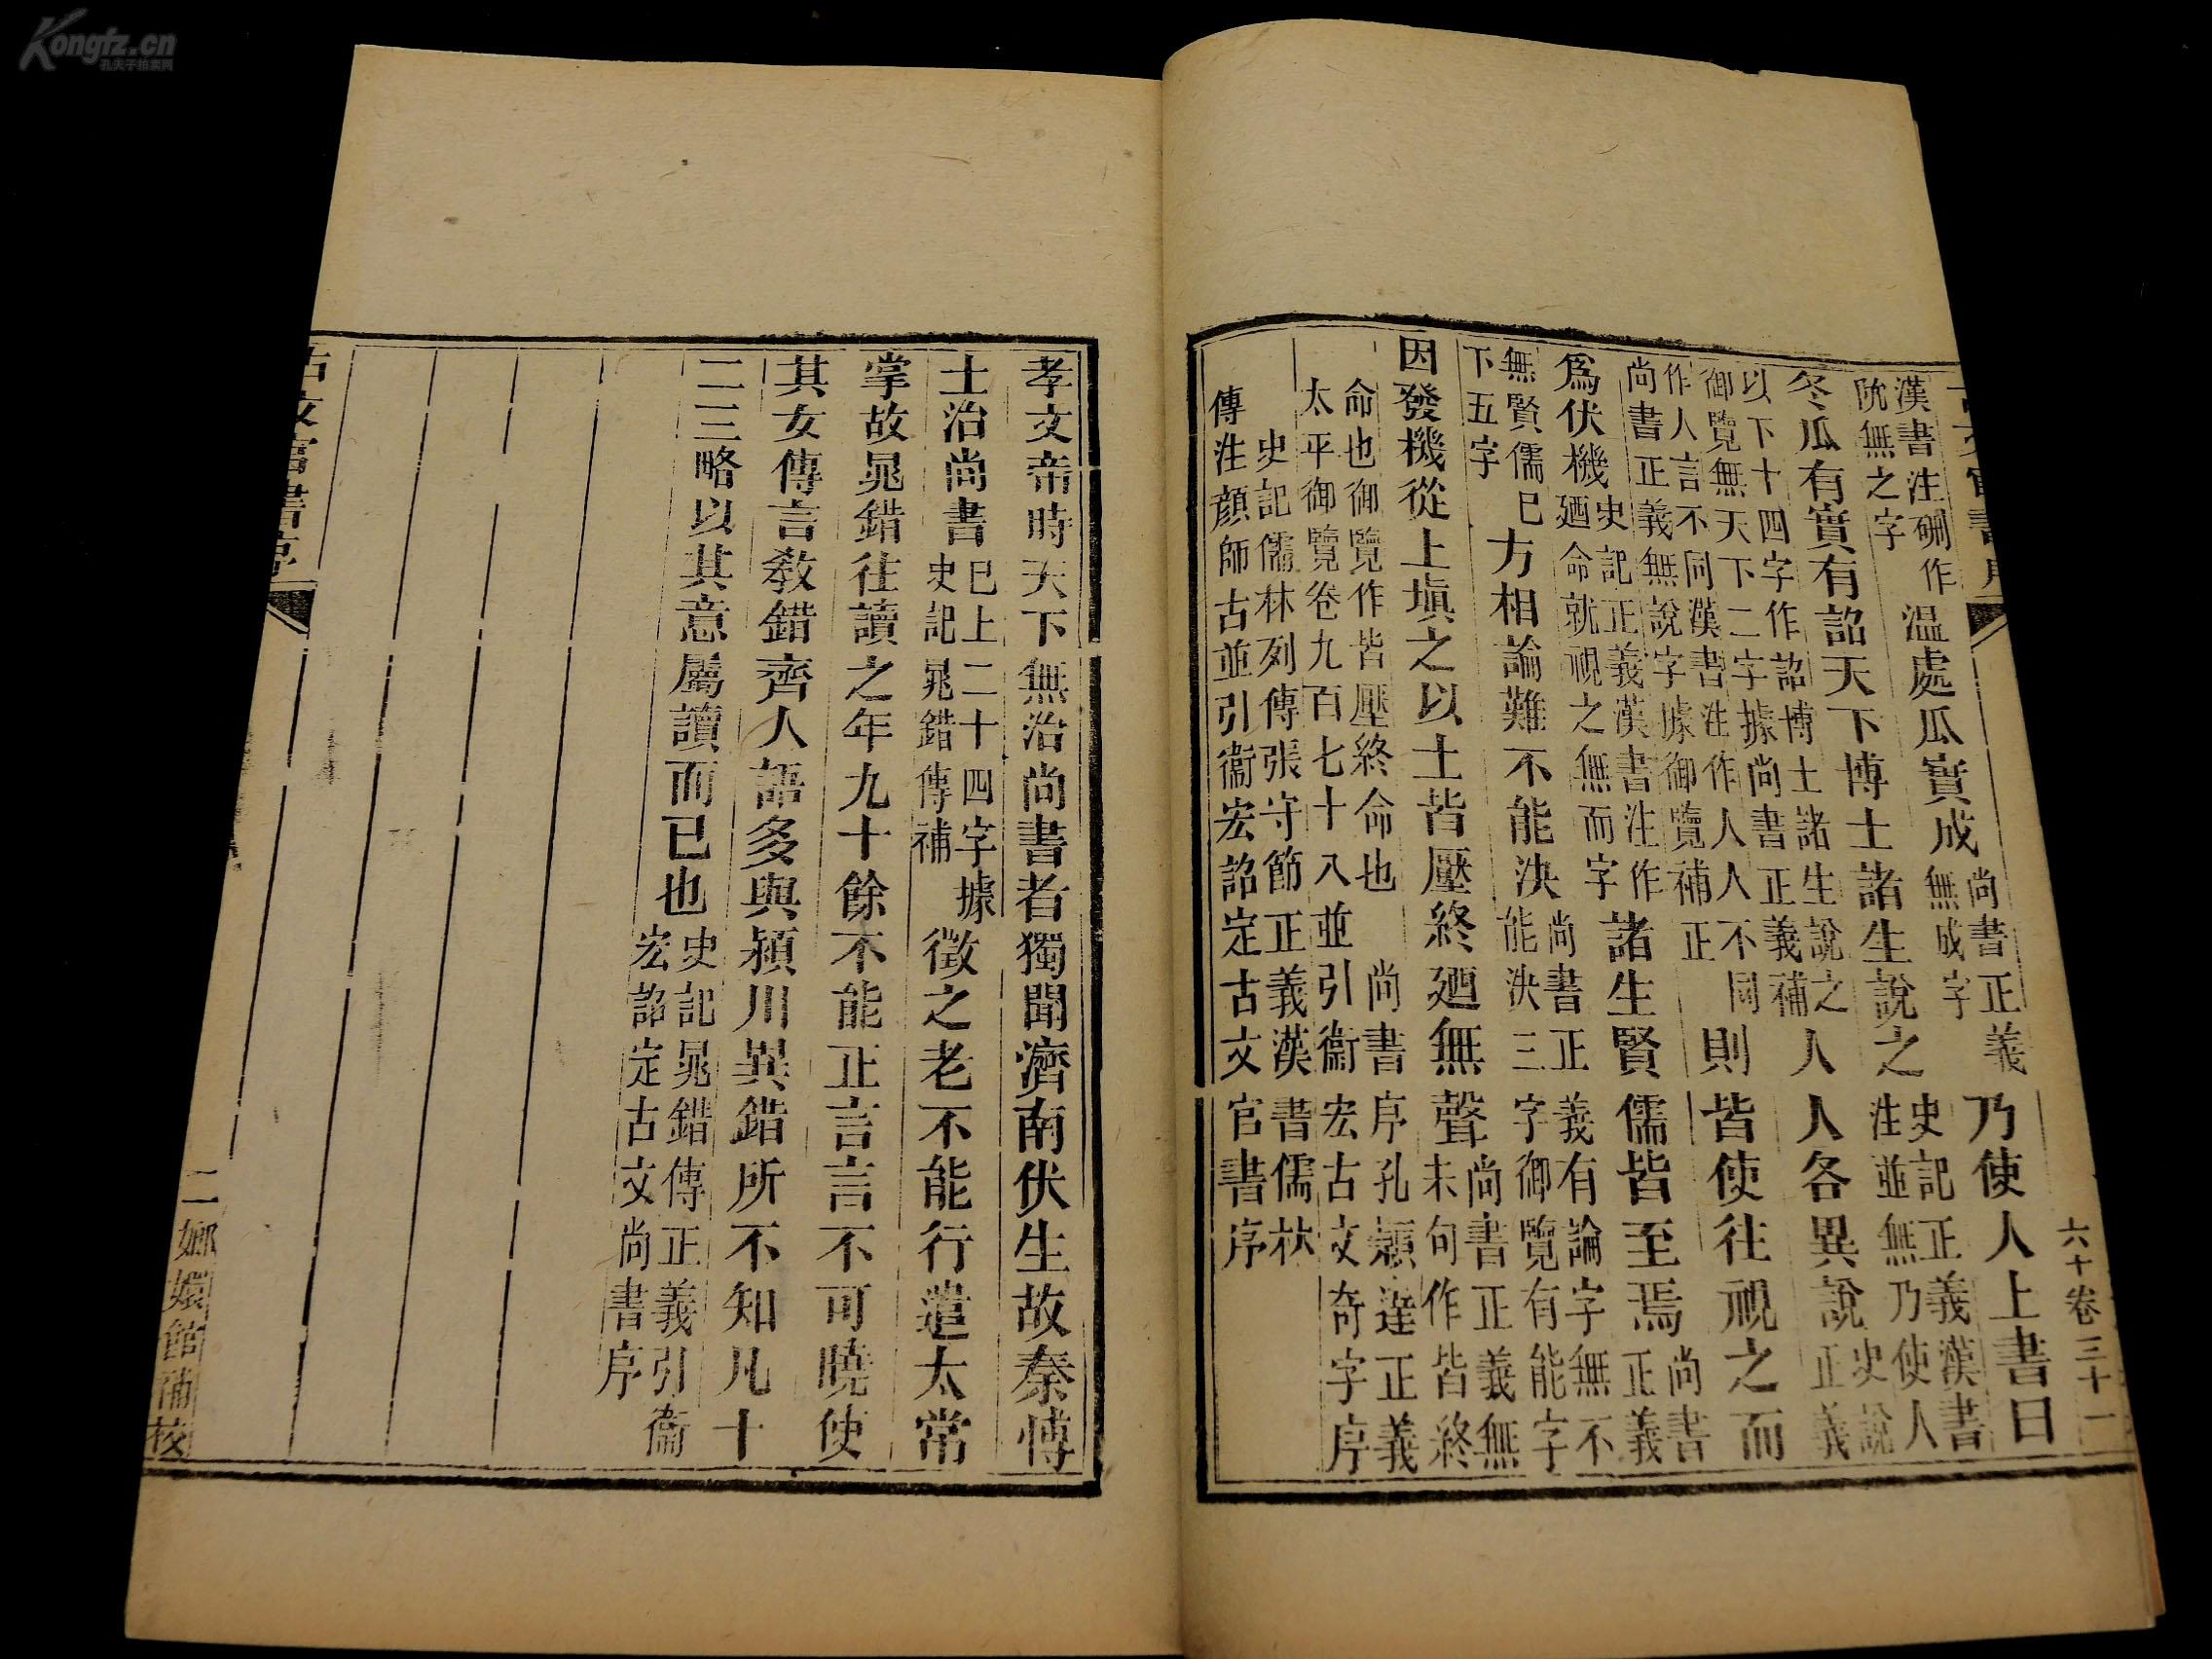 六十卷三十一
漢書注硎作
阬無之字
温處瓜實成
尚書正義
無成字
乃使人上書曰
冬瓜有實有詔天下博士諸生說之
史記正義漢書
注並無乃使人
以下十四字作詔博士諸生說之
御覽無天下二字據尚書正義補
人人各異說
史說
正義
作人言不同漢書注作人人不同
尚書正義無說字據御覽補正
則皆使往視之而
爲伏機
史記正義漢書注作
廼命就視之無而字
諸生賢儒皆至焉
尚書
正義
無賢儒已
下五字
方相論難不能決
尚書正義有論字無不
能決三字御覽有能字
因發機從上塡之以土皆壓終廼無聲
尚書正義無
未句作皆終
命也御覽作皆壓終命也 尚書序孔穎達正義
太平御覽卷九百七十八並引衞宏古文奇字序
史記儒林列傳張守節正義漢書儒林
傳注顔師古並引衞宏詔定古文官書序
孝文帝時天下無治尚書者獨聞濟南伏生故秦博
士治尚書
已上二十四字據
史記鼂錯傳補
徵之老不能行遣太常
掌故鼂錯往讀之年九十餘不能正言言不可曉使
其女傳言敎錯齊人語多與潁川異錯所不知凡十
二三略以其意屬讀而已也
史記鼂錯傳正義引衞
宏詔定古文尚書序
古文官書序
二
嫏嬛館補校
Kongfz.cn
孔夫子拍卖网